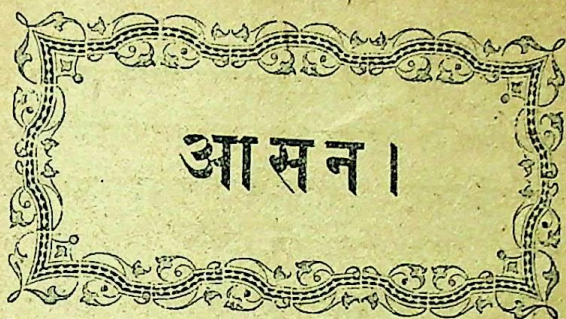 आसन।